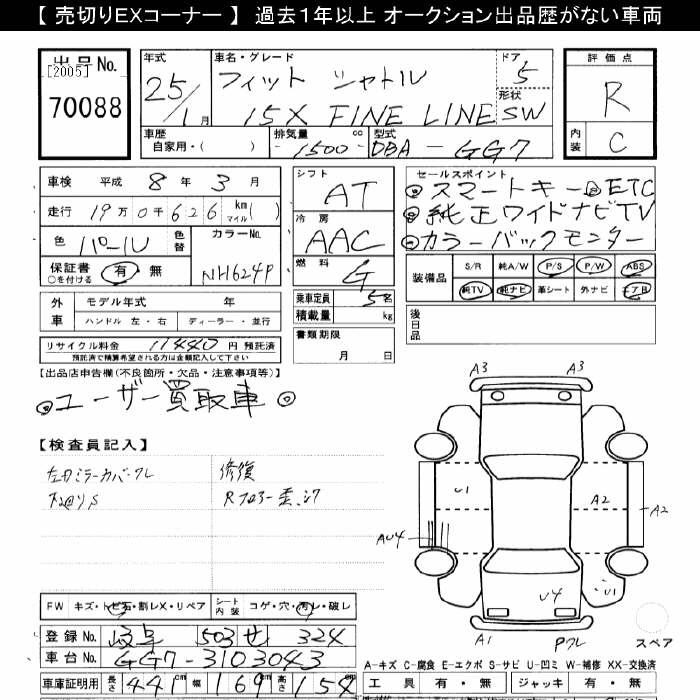 【 売切りEXコーナー 】 過去1年以上 オークション出品歴がない車両
出品No. [2005] 70088
年式 25/1月
車名・グレード フィット シャトル
15X FINE LINE
ドア 5
形状 SW
評価点 R
内装 C
車歴 自家用・( )
排気量 1500 cc
型式 DBA-GG7
車検 平成 8年 3月
走行 19万0千626 km マイル( )
色 パール 色替
カラーNo. NH624P
保証書 ○を付ける 有・無
シフト AT
冷房 AAC
燃料 G
乗車定員 5名
積載量 kg
書類期限 月 日
セールスポイント
◎スマートキー◎ETC
◎純正ワイドナビTV
◎カラーバックモンター
装備品 S/R 純A/W P/S P/W ABS
純TV 純ナビ 革シート 外ナビ エアB
後日品
外車 モデル年式 年
ハンドル 左・右 ディーラー・並行
リサイクル料金 11440円 預託済
預託済で精算希望される方は金額記入して下さい
【出品店申告欄(不良箇所・欠品・注意事項等)】
◎ユーザー買取車◎
【検査員記入】
左ドミラーカバークレ
修復
A3 A3
U1 A2 A2
AU4
U4 U1
A1 Pクレ
スペア
FW キズ・トビ石・割レX・リペア
シート内装 コゲ・穴・汚レ・破レ
登録No. 岐阜 503 せ 324
車台No. GG7-3103043
車庫証明用 長さ 441cm 幅 169cm 高さ 154cm
A-キズ C-腐食 E-エクボ S-サビ U-凹ミ W-補修 XX-交換済
工具 有・無 ジャッキ 有・無